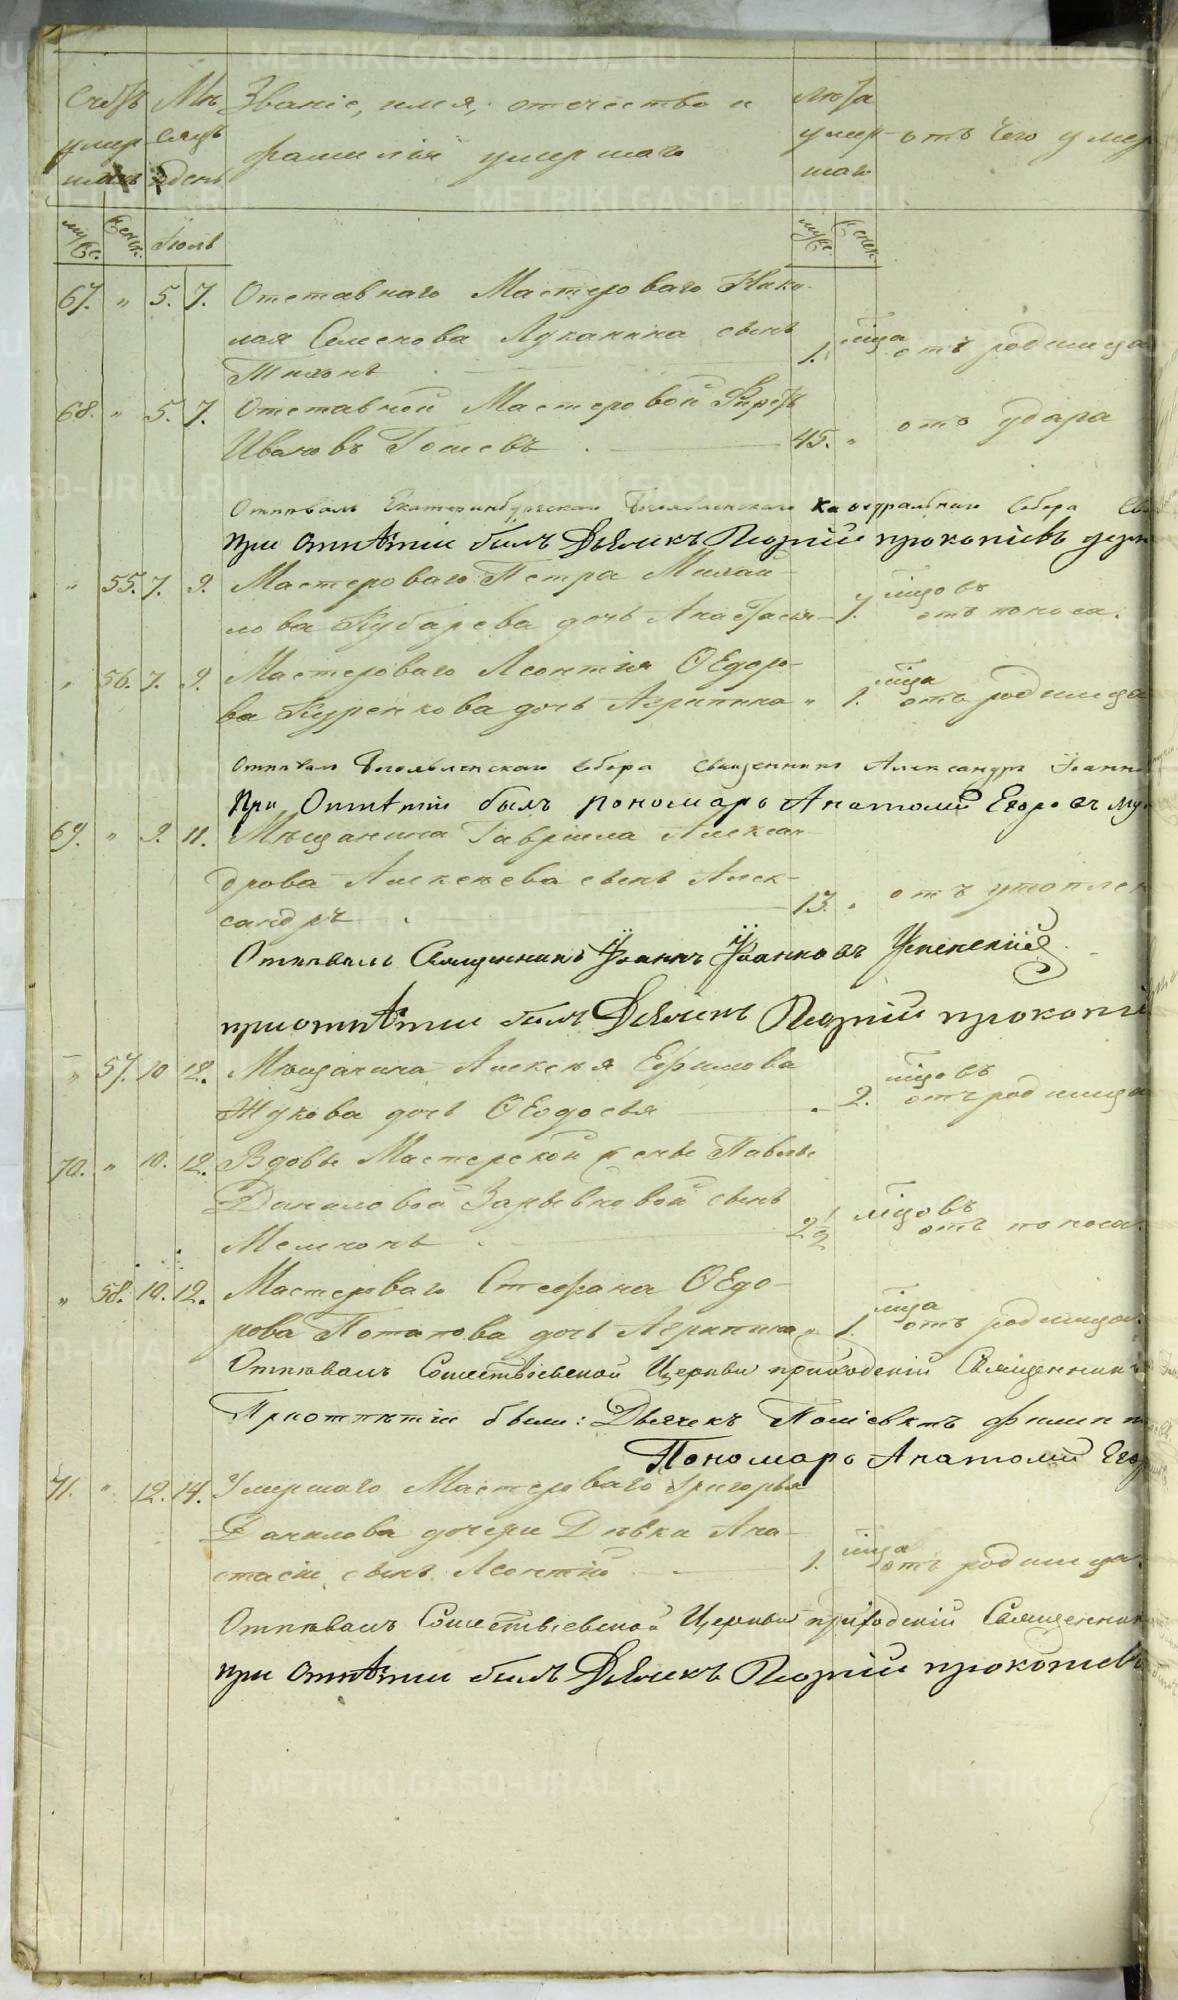 Счетъ Мѣ Званіе, имя, отечество и лѣта
умер сяцъ фамилія умершаго умер- отъ чего умер
шихъ и день шаго
муж. женск. Іюль муж. женск.
67. " 5. 7. Отставнаго Мастероваго Нико-
лая Семенова Луканина сынъ 1. міца отъ родимца
Тихонъ
68. " 5. 7. Отставной Мастеровой
Ивановъ 45. " отъ удара
Отпѣвалъ Екатеринбургскаго Богоявленскаго Каѳедральнаго Собора Св
При Отпѣтіи былъ Дьячекъ Георгій прокопіевъ
" 55. 7. 9. Мастероваго Петра Михай-
лова Кубарева дочь Анастасія 7. міцовъ отъ поноса.
" 56. 7. 9. Мастероваго Леонтія Ѳедоро-
ва Куренкова дочь Агрипина " 1. міца отъ родимца
Отпѣвалъ Богоявленскаго Собора Священникъ Александръ Іоанно
При Отпѣтіи былъ Пономарь Анатолій Егоровъ
69. " 9. 11. Мѣщанина Гавріила Алекса-
дрова сынъ Алек-
сандръ 13. " отъ утоплен
Отпѣвалъ Священникъ Іоаннъ Іоанновъ Успенскій
при отпѣтіи былъ Дьячекъ Георгій прокопі
" 57. 10 12. Мѣщанина Алексѣя Ефимова
Жукова дочь Ѳеодосья " 2. міцовъ отъ родимца
70. " 10. 12. Вдовы Мастерской жены Павлы
Даниловой сынъ
2 1/2 міцовъ отъ поноса.
" 58. 10. 12. Мастероваго Стефана Ѳедо-
рова Потапова дочь Агрипина " 1. міца отъ родимца.
Отпѣвалъ Сошествіевской Церкви приходскій Священникъ
При отпѣтіи были: Дьячекъ
Пономарь Анатолій Егор
71. " 12. 14. Умершаго Мастероваго Григорья
Данилова дочери Дѣвки Ана-
стасіи сынъ Леонтій 1. міца отъ родимца.
Отпѣвалъ Сошествіевской Церкви приходскій Священник
при Отпѣтіи былъ Дьячекъ Георгій прокопіевъ